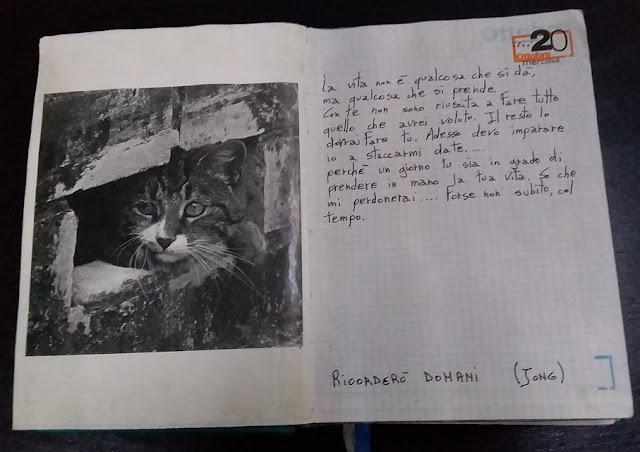 20
mercoledì
La vita non è qualcosa che si dà,
ma qualcosa che si prende.
Con te non sono riuscita a fare tutto
quello che avrei voluto. Il resto lo
dovrai fare tu. Adesso devo imparare
io a staccarmi da te.....
perchè un giorno tu sia in grado di
prendere in mano la tua vita. So che
mi perdonerai.... Forse non subito, col
tempo.
RICORDERÒ DOMANI (JONG)